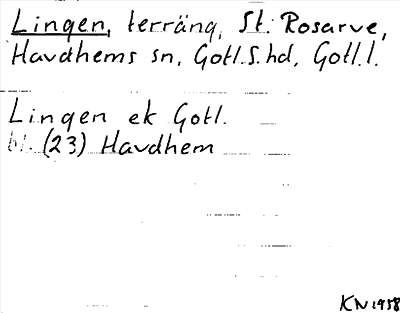 Lingen, terräng, St. Rosarve,
Havdhems sn, Gotl. S. hd, Gotl. l.
Lingen ek Gotl.
bl. (23) Havdhem
KN 1958